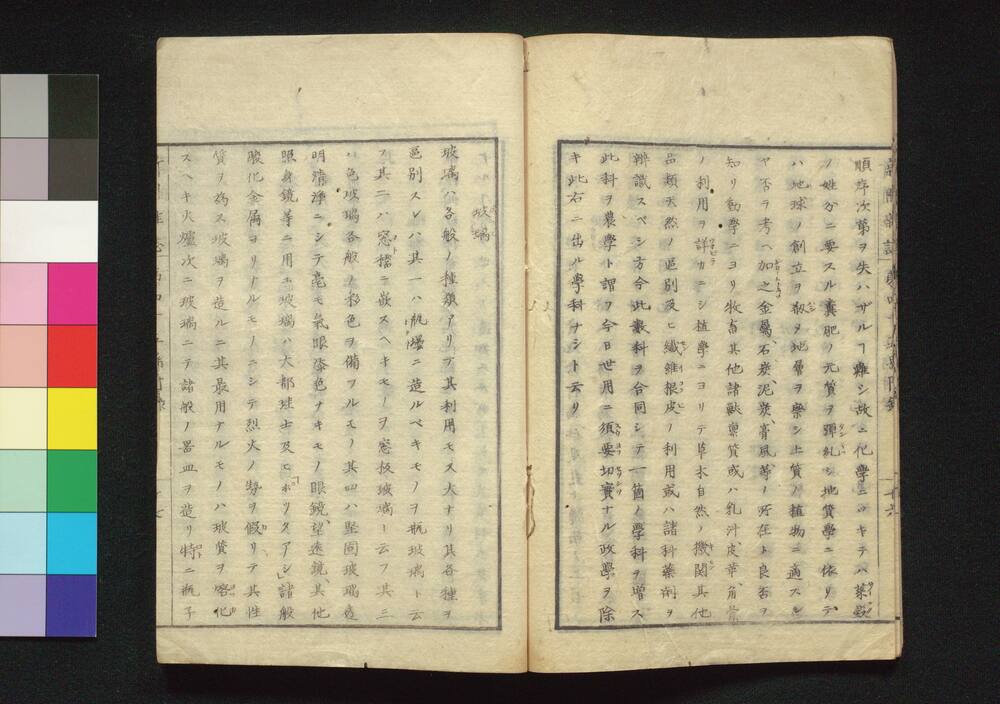 順序次第ヲ失ハザルヿ難シ故ニ化學ニヨキテハ菜穀
ノ姓分ニ要スル糞肥ノ元質ヲ彈糺シ地質學ニ依リテ
ハ地球ノ創立ヲ敲メ地層ヲ察シ土質ノ植物ニ適スル
ヤ否ヲ考ヘ加之金屬、石炭、泥炭、膏風等ノ所在ト良否ヲ
知リ動學ニヨリ牧畜其他諸獸稟質或ハ乳汁皮革、角
ノ利用ヲ詳カニシ植學ニヨリテ草木自然ノ機関其他
品類天然ノ區別及ヒ纖維根皮ノ利用或ハ諸科藥剤ヲ
辨識スベシ方今此數科ヲ合同シテ一箇ノ學科ヲ増ス
此科ヲ農學ト謂フ今日世用ニ須要切實ナル政學ヲ除
キ此右ニ出ル學科ナシト云リ
玻璃
玻璃ハ各般ノ種類アリテ其利用モス大ナリ其各種ヲ
區別スレハ其一ハ瓶壜ニ造ルベキモノヲ瓶玻璃ト云
フ其二ハ窓櫺ニ嵌スヘキモノヲ窓板玻璃ト云フ其三
ハ色玻璃各般ノ彩色ヲ備フルモノ其四ハ堅固玻璃透
明清淨ニシテ毫モ氣眼漆色ナキモノ眼鏡、望遠鏡、其他
照身鏡等ニ用ユ玻璃ハ大都珪士及ヒホツタアシ」諸般
酸化金屬ヨリナルモノニシテ烈火ノ勢ヲ假リテ其性
質ヲ為ス玻璃ヲ造ルニ其最用ナルモノハ玻質ヲ熔化
スヘキ火爐次ニ玻璃ニテ諸般ノ器皿ヲ造リ特ニ瓶子